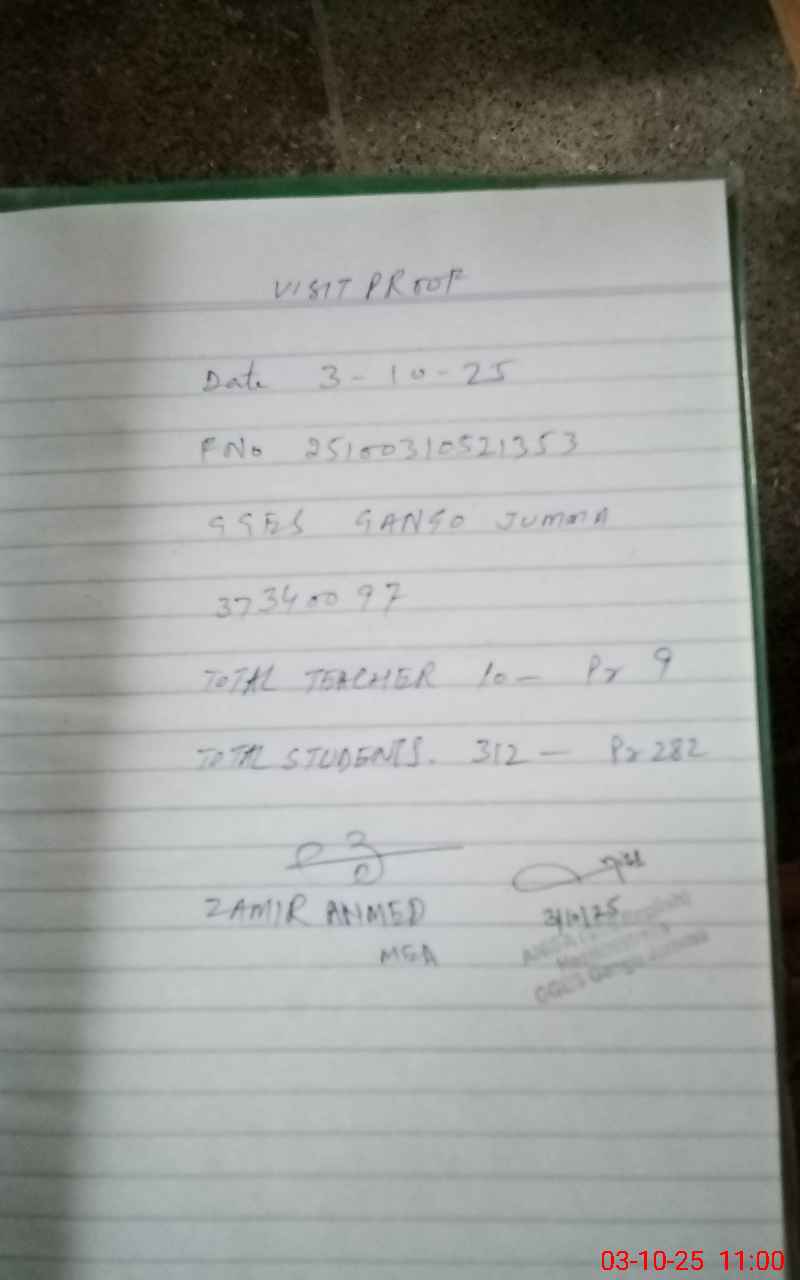 VISIT PROOF
Date 3-10-25
F No 25100310521353
GGES GANGO JUMMA
37340097
TOTAL TEACHER 10 - Pr 9
TOTAL STUDENTS. 312 - Pr 282
ZAMIR AHMED
3/10/25
MEA
03-10-25 11:00